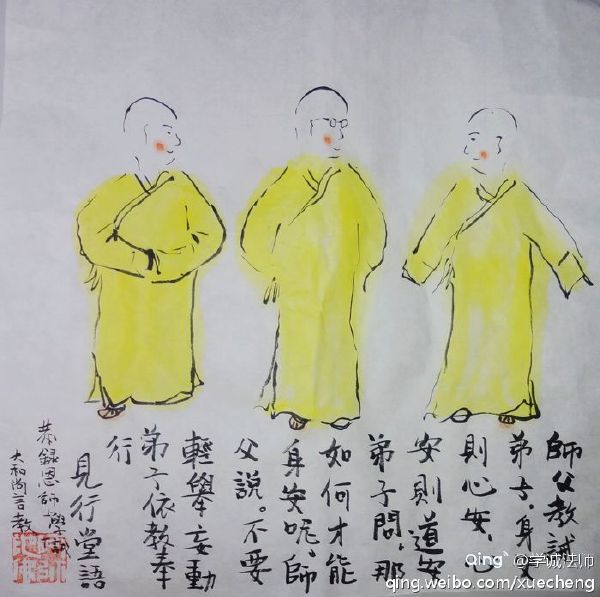 師父教誡
弟子、身安
則心安、心
安則道安
弟子問、那
如何才能
身安呢、師
父說。不要
輕舉妄動
弟子依教奉
行
見行堂語
恭錄恩師學誠
大和尚言教
Qing @学诚法师
qing.weibo.com/xuecheng